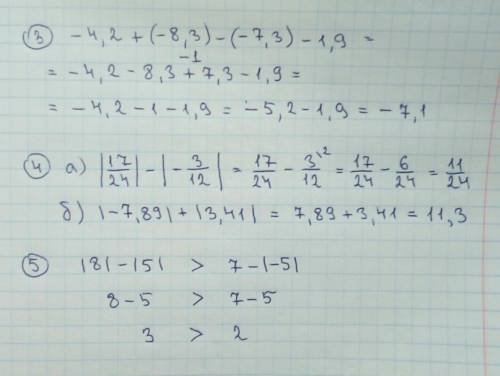 ③ -4,2 + (-8,3) - (-7,3) - 1,9 =
-1
= -4,2 - 8,3 + 7,3 - 1,9 =
= -4,2 - 1 - 1,9 = -5,2 - 1,9 = -7,1
④ а) |17/24| - |-3/12| = 17/24 - 3\²/12 = 17/24 - 6/24 = 11/24
б) |-7,89| + |3,41| = 7,89 + 3,41 = 11,3
⑤ |8| - |5| > 7 - |-5|
8 - 5 > 7 - 5
3 > 2